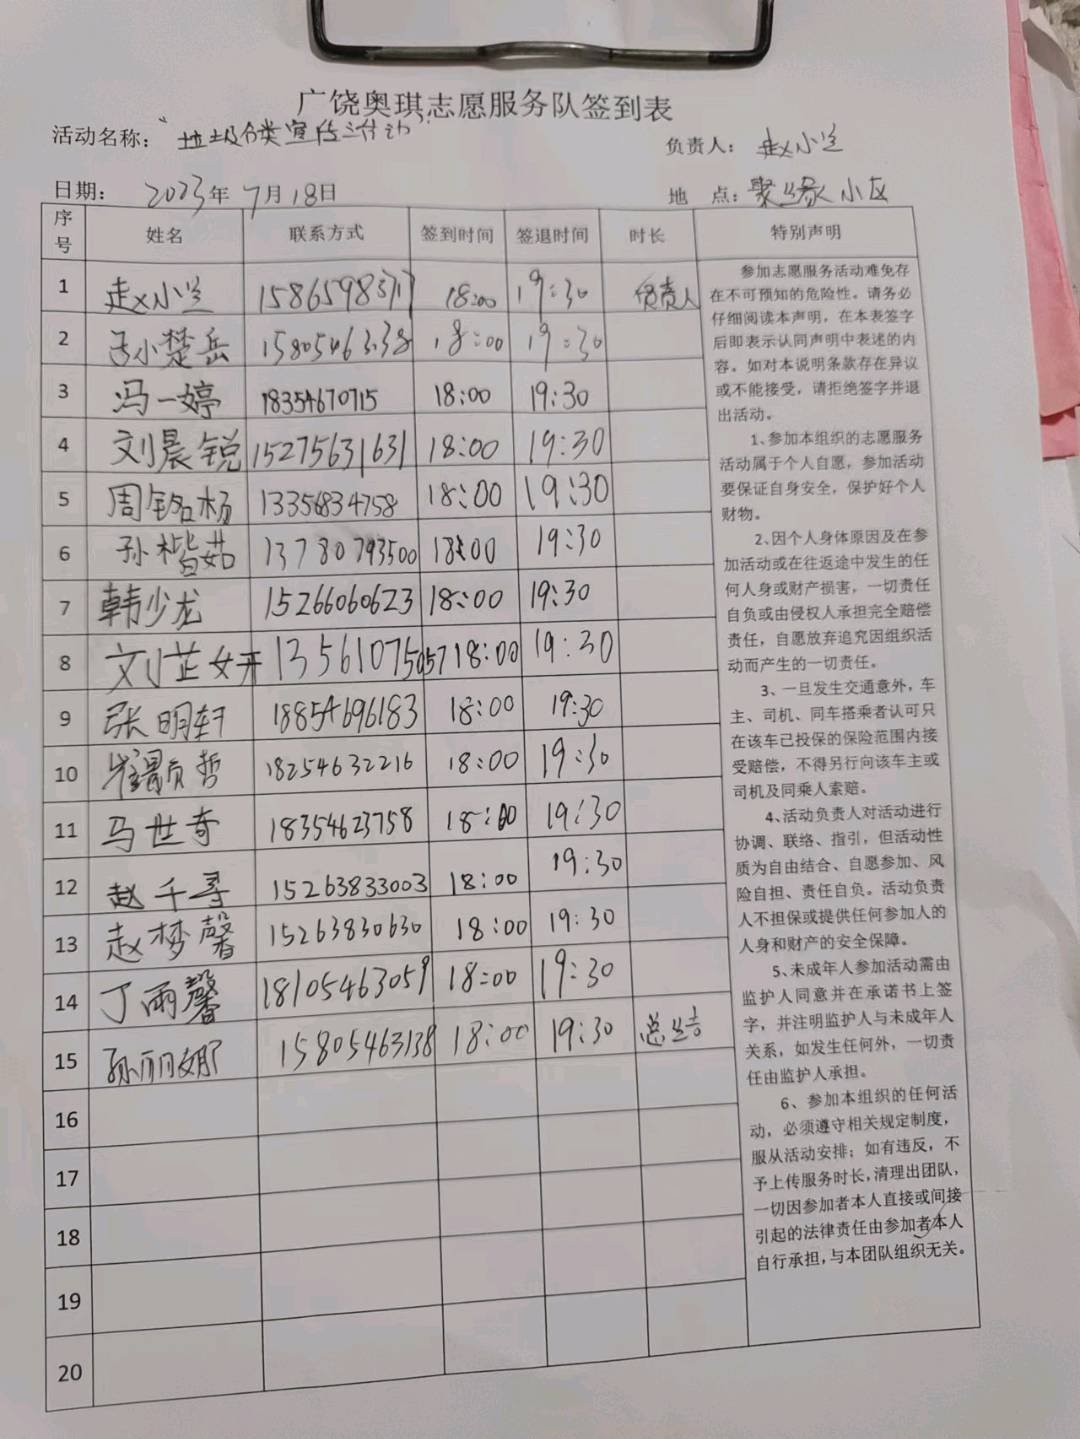 广饶奥琪志愿服务队签到表
活动名称：“垃圾分类宣传活动”
负责人：赵小兰
日期：2023年7月18日
地 点：聚缘小区
序号 姓名 联系方式 签到时间 签退时间 时长 特别声明
1 赵小兰 18:00 19:30 负责人
2 小楚岳 18:00 19:30
3 冯一婷 18354670715 18:00 19:30
4 刘晨锐 15275631631 18:00 19:30
5 周铭杨 13356834758 18:00 19:30
6 孙楷茹 13780793500 18:00 19:30
7 韩少龙 15266060623 18:00 19:30
8 刘芷妍 13561075057 18:00 19:30
9 张明轩 18854696183 18:00 19:30
10 崔颢哲 18254632216 18:00 19:30
11 马世奇 18354623758 18:00 19:30
12 赵千寻 15263833003 18:00 19:30
13 赵梦馨 15263830630 18:00 19:30
14 丁雨馨 18105463059 18:00 19:30
15 孙丽娜 15805463138 18:00 19:30 总结
16
17
18
19
20
参加志愿服务活动难免存
在不可预知的危险性。请务必
仔细阅读本声明，在本表签字
后即表示认同声明中表述的内
容。如对本说明条款存在异议
或不能接受，请拒绝签字并退
出活动。
1、参加本组织的志愿服务
活动属于个人自愿，参加活动
要保证自身安全，保护好个人
财物。
2、因个人身体原因及在参
加活动或在往返途中发生的任
何人身或财产损害，一切责任
自负或由侵权人承担完全赔偿
责任，自愿放弃追究因组织活
动而产生的一切责任。
3、一旦发生交通意外，车
主、司机、同车搭乘者认可只
在该车已投保的保险范围内接
受赔偿，不得另行向该车主或
司机及同乘人索赔。
4、活动负责人对活动进行
协调、联络、指引，但活动性
质为自由结合、自愿参加、风
险自担、责任自负。活动负责
人不担保或提供任何参加人的
人身和财产的安全保障。
5、未成年人参加活动需由
监护人同意并在承诺书上签
字，并注明监护人与未成年人
关系，如发生任何外，一切责
任由监护人承担。
6、参加本组织的任何活
动，必须遵守相关规定制度，
服从活动安排；如有违反，不
予上传服务时长，清理出团队，
一切因参加者本人直接或间接
引起的法律责任由参加者本人
自行承担，与本团队组织无关。